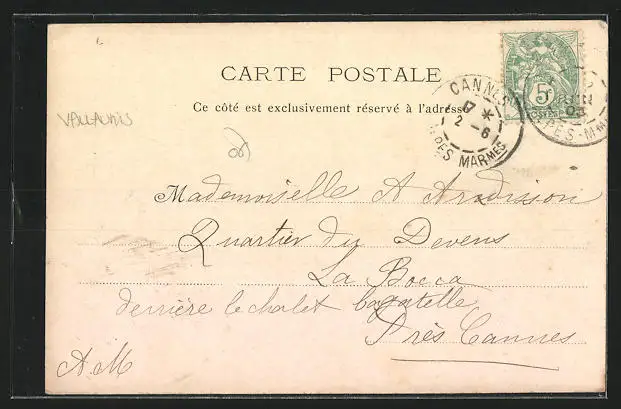 CARTE POSTALE
Ce côté est exclusivement réservé à l'adresse
CANNES
17 *
2 - 6
ALPES MARMES
5c
POSTES
JUIN
03
ALPES-MMES
VALLAURIS
Mademoiselle A Ardisson
Quartier du Devens
La Bocca
derrière le chalet bagatelle,
Près Cannes
A.M